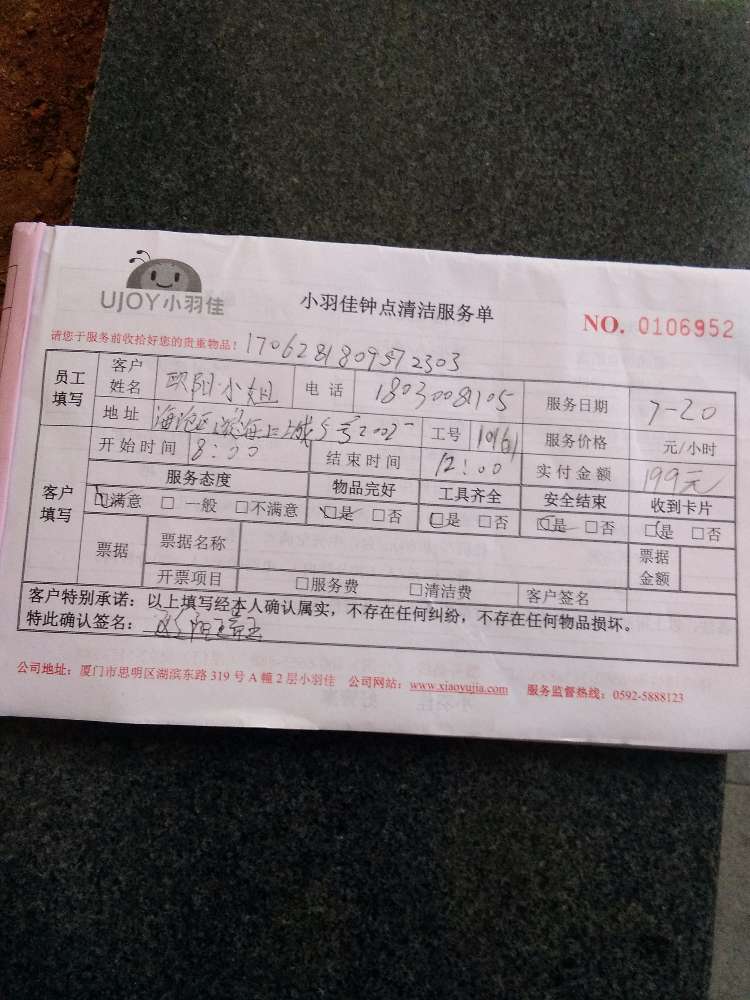 UJOY小羽佳
小羽佳钟点清洁服务单
NO. 0106952
请您于服务前收拾好您的贵重物品! 1706281809572303
员工填写 客户姓名 欧阳小姐 电话 18030081105 服务日期 7-20
地址 海沧区 海上城5号2002 工号 10161 服务价格 元/小时
开始时间 8:00 结束时间 12:00 实付金额 199元
客户填写 服务态度 物品完好 工具齐全 安全结束 收到卡片
☑满意 □一般 □不满意 ☑是 □否 ☑是 □否 ☑是 □否 ☑是 □否
票据 票据名称 票据金额
开票项目 □服务费 □清洁费 客户签名
客户特别承诺:以上填写经本人确认属实,不存在任何纠纷,不存在任何物品损坏。
特此确认签名:
公司地址:厦门市思明区湖滨东路 319 号 A 幢 2 层小羽佳 公司网站:www.xiaoyujia.com 服务监督热线:0592-5888123